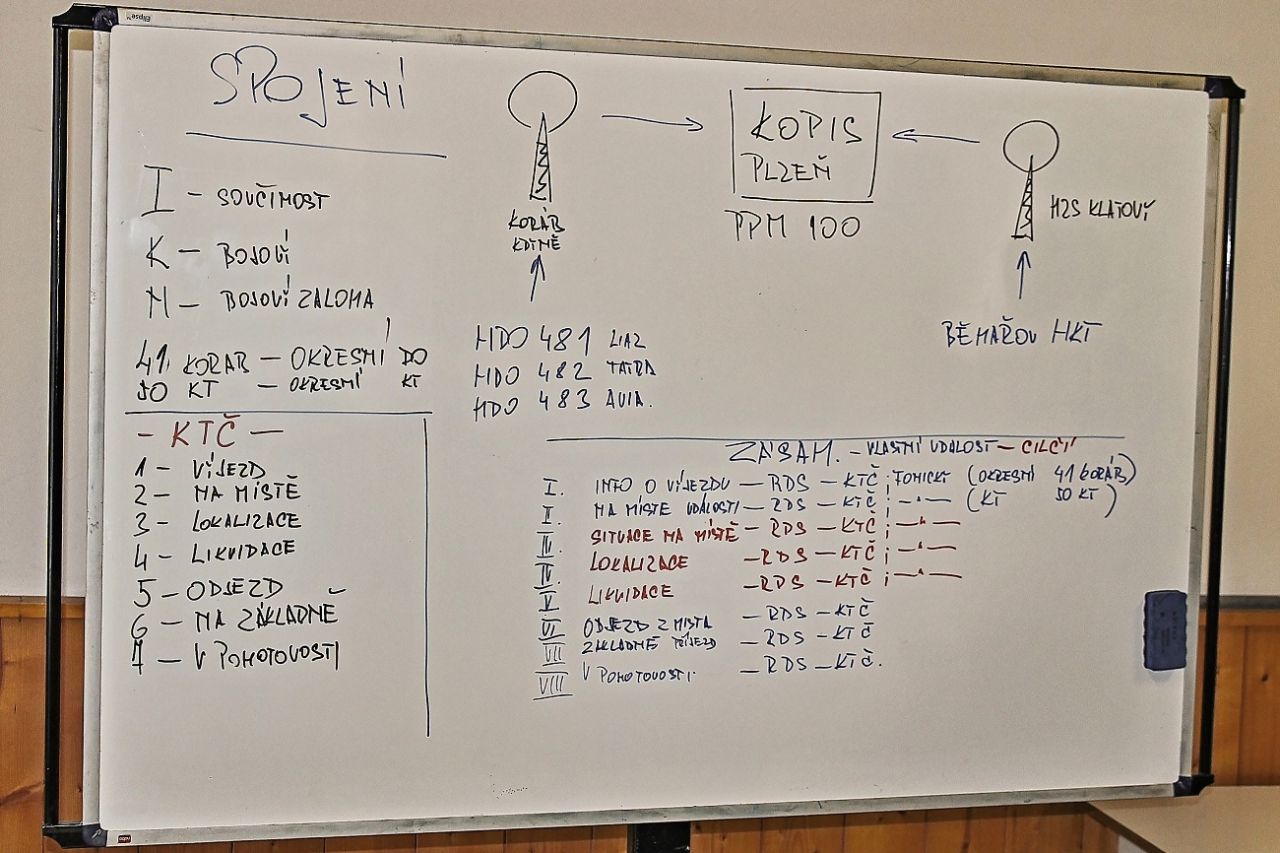 SPOJENÍ
I – SOUČIMOST
K – BOJOVÍ
N – BOJOVÍ ZALOHA
41 KORAB – OKRESMÍ DO
50 KT – OKRESMÍ KT
– KTČ –
1 – VÍJEZD
2 – MA MÍSTĚ
3 – LOKALIZACE
4 – LIKVIDACE
5 – ODJEZD
6 – MA ZÁKLADMĚ
7 – V POHOTOVOSTI
KORÁB
KDYMĚ
HDO 481 LIAZ
HDO 482 TATRA
HDO 483 AVIA.
KOPIS
PLZEŇ
PPM 100
HZS KLATOVY
BĚHAŘOV HKT
ZÁSAH. – VLASTMÍ UDALOST – CILČÍ
I. INFO O VÍJEZDU – RDS – KTČ ; FOMICKY (OKRESMÍ 41 KORÁB)
II. MA MÍSTE UDÁLOSTI – RDS – KTČ ; –"– (KT 50 KT)
III. SITUACE MA MÍSTĚ – RDS – KTČ ; –"–
IV. LOKALIZACE – RDS – KTČ ; –"–
V LIKVIDACE – RDS – KTČ ; –"–
VI ODJEZD Z MISTA – RDS – KTČ
VII ZÁKLADMĚ PŘÍJEZD – RDS – KTČ
VIII V POHOTOVOSTI. – RDS – KTČ.